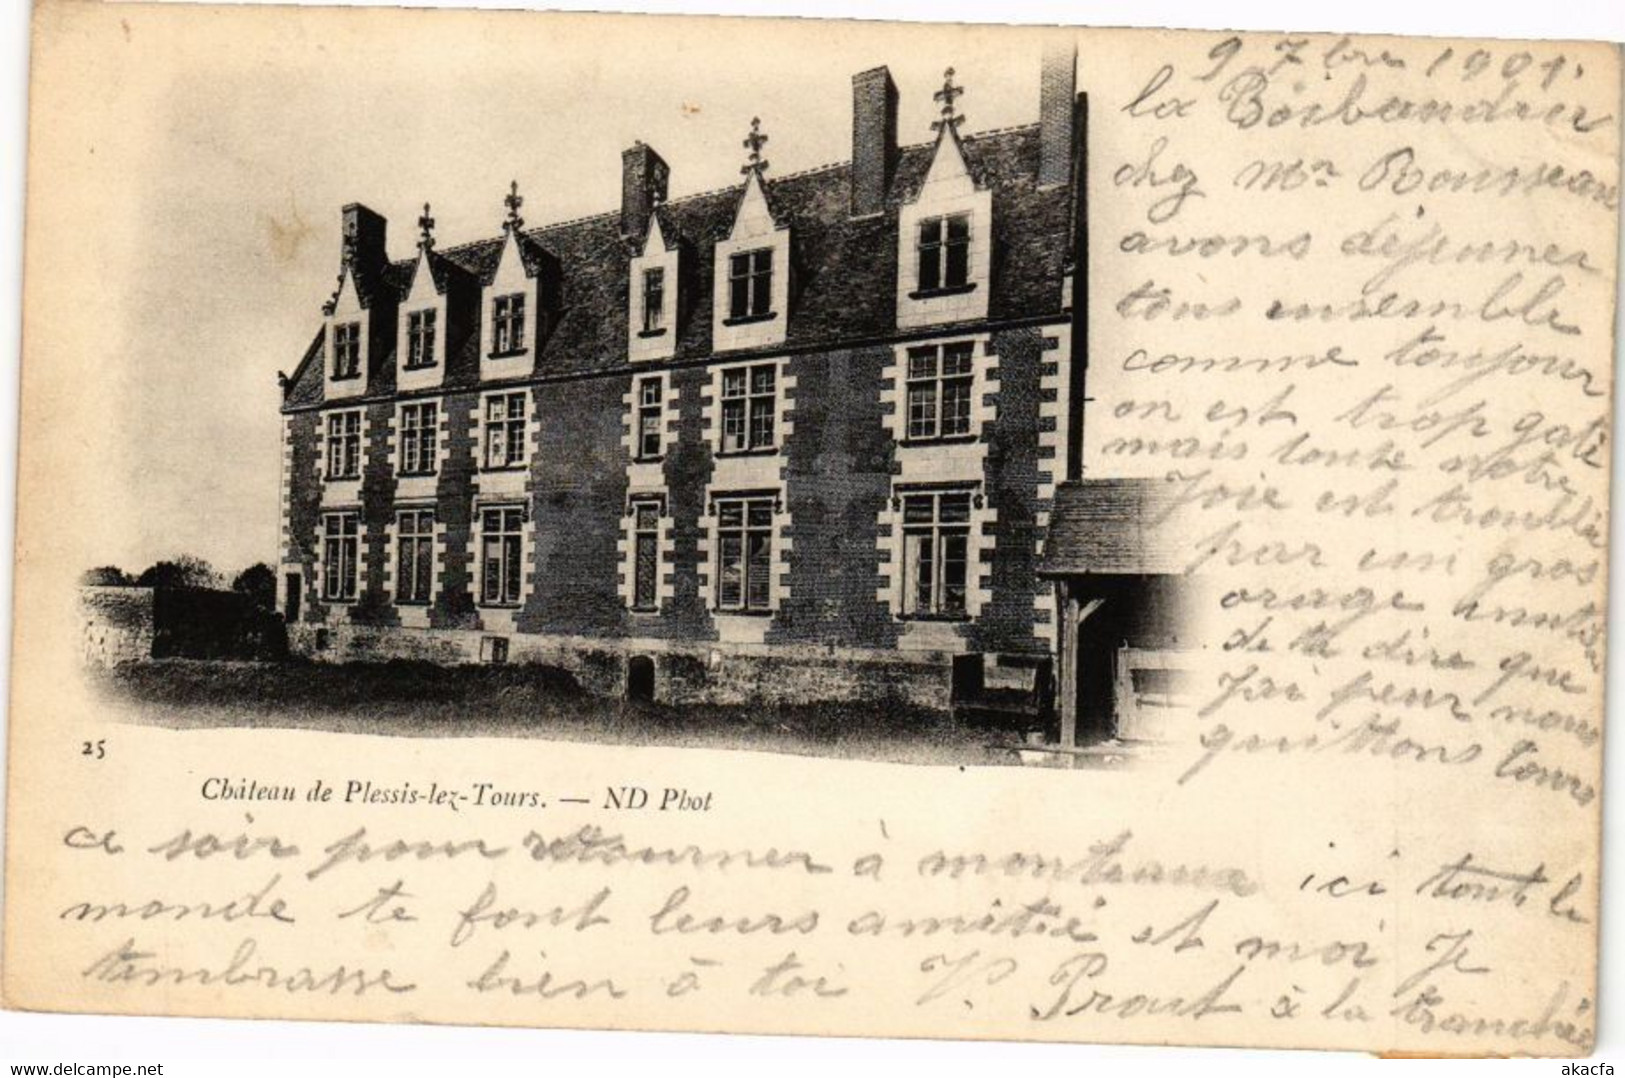 9 7bre 1901.
la Boibaudrie
chez Mr Rousseau
avons déjeuner
tous ensemble
comme toujour
on est trop gatè
mais toute notre
Joie est troublée
par un gros
orage inutile
de te dire que
J'ai peur nous
quittons tours
25
Château de Plessis-lez-Tours. — ND Phot
ce soir pour retourner à montreaux ici tout le
monde te font leurs amitié et moi Je
t'embrasse bien à toi V. Proust à la tranchée
akacfa